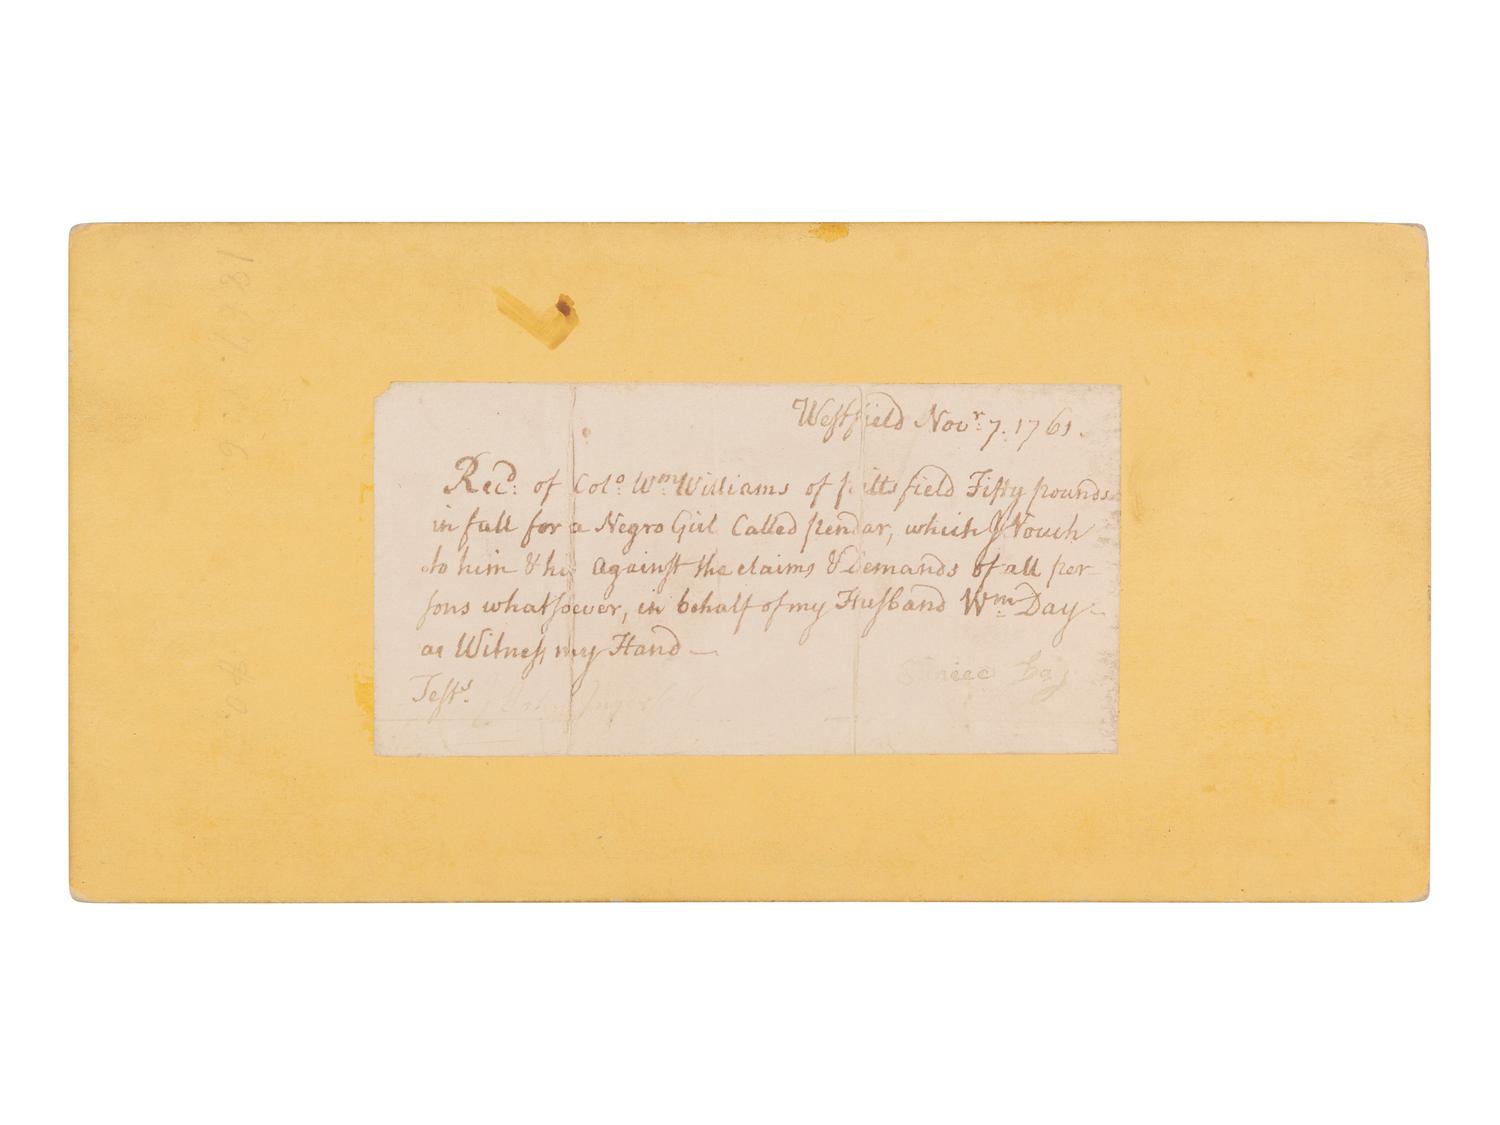 Westfield Novr. 7. 1761.
Recd. of Colo. Wm. Williams of pittsfield Fifty pounds
in full for a Negro Girl Called pendar, which I Vouch
to him & his against the claims & demands of all per-
sons whatsoever, in behalf of my Husband Wm. Day
as Witness my Hand —
Eunice Day
Tests.